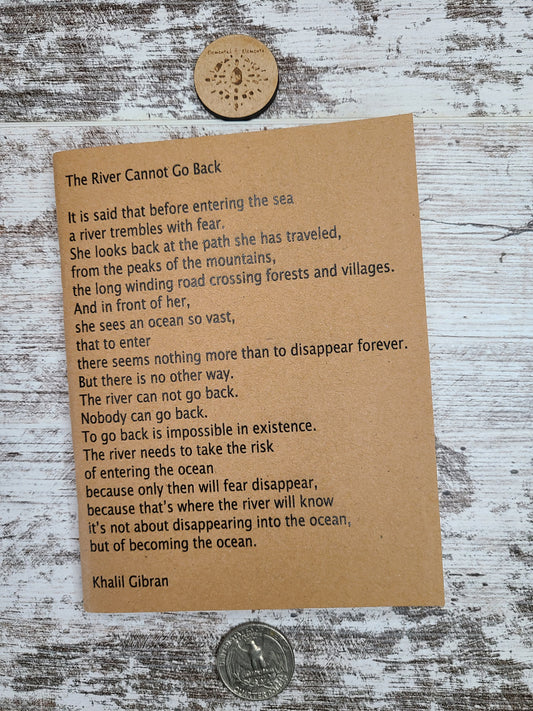 Elemental Elements
The River Cannot Go Back
It is said that before entering the sea
a river trembles with fear.
She looks back at the path she has traveled,
from the peaks of the mountains,
the long winding road crossing forests and villages.
And in front of her,
she sees an ocean so vast,
that to enter
there seems nothing more than to disappear forever.
But there is no other way.
The river can not go back.
Nobody can go back.
To go back is impossible in existence.
The river needs to take the risk
of entering the ocean
because only then will fear disappear,
because that's where the river will know
it's not about disappearing into the ocean,
but of becoming the ocean.
Khalil Gibran